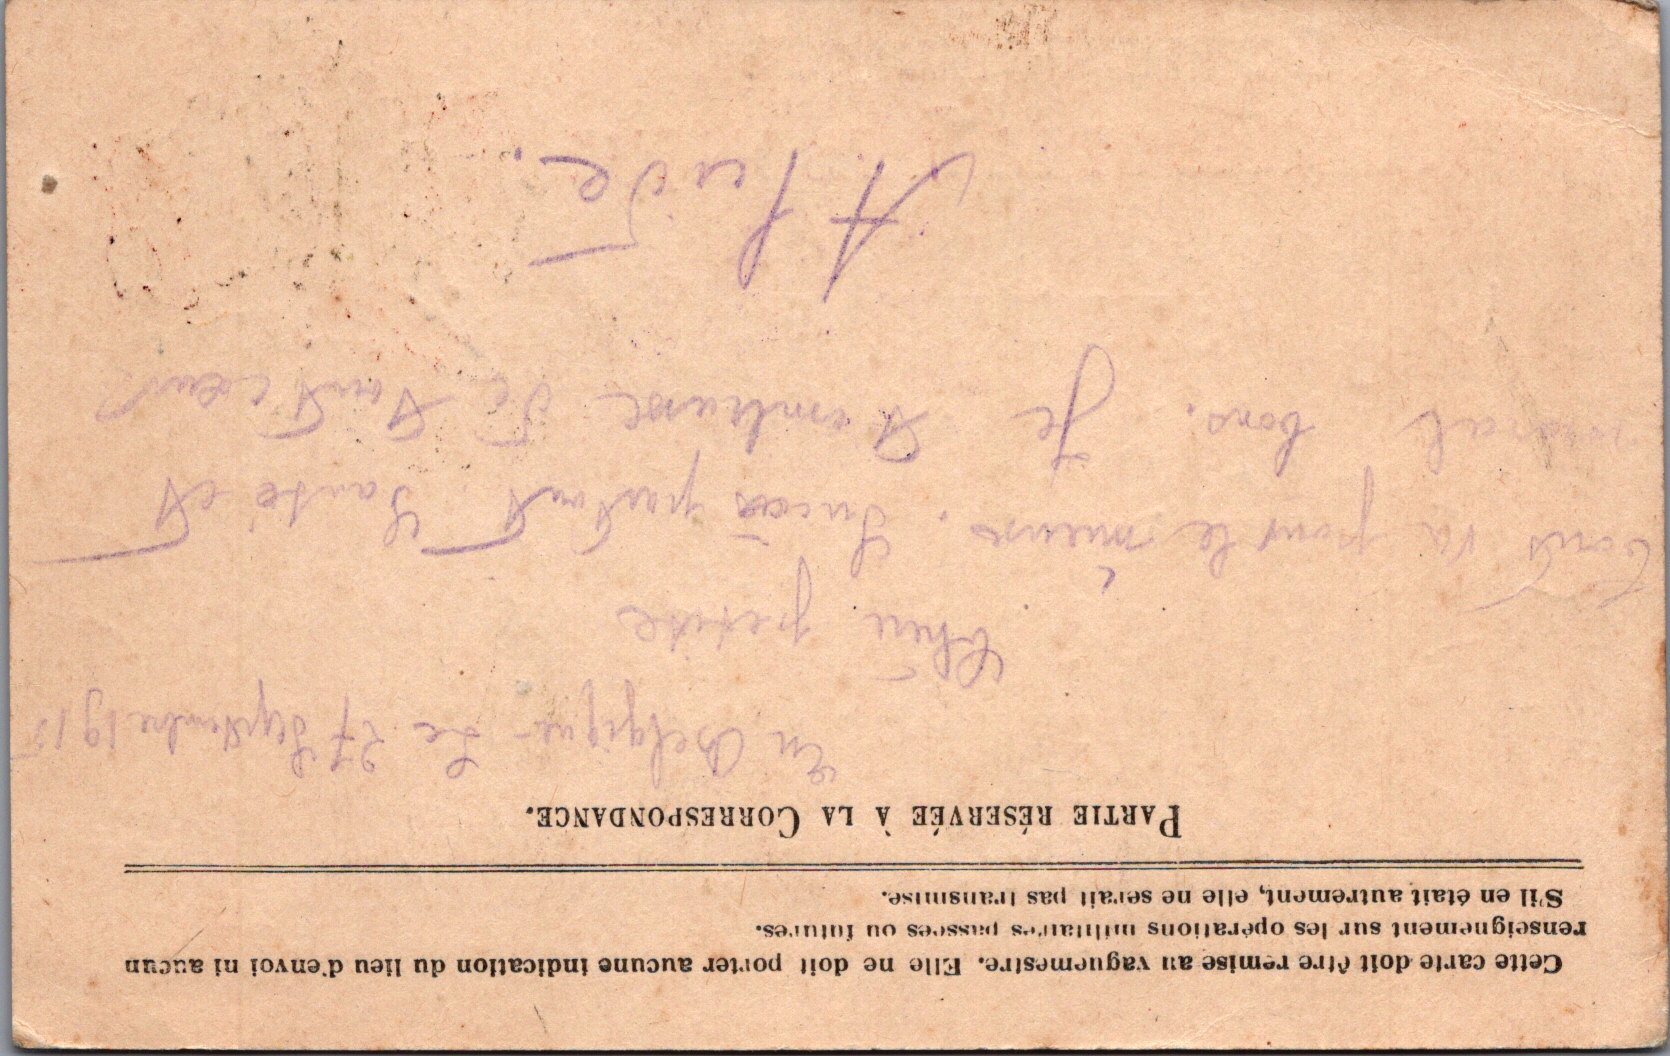 Cette carte doit être remise au vaguemestre. Elle ne doit porter aucune indication du lieu d'envoi ni aucun
renseignement sur les opérations militaires passées ou futures.
S'il en était autrement, elle ne serait pas transmise.
PARTIE RÉSERVÉE À LA CORRESPONDANCE.
En Belgique Le 27 Septembre 1915
petite
Tout va pour le mieux. Succès partout. Santé et
moral bons. Je t'embrasse de tout cœur